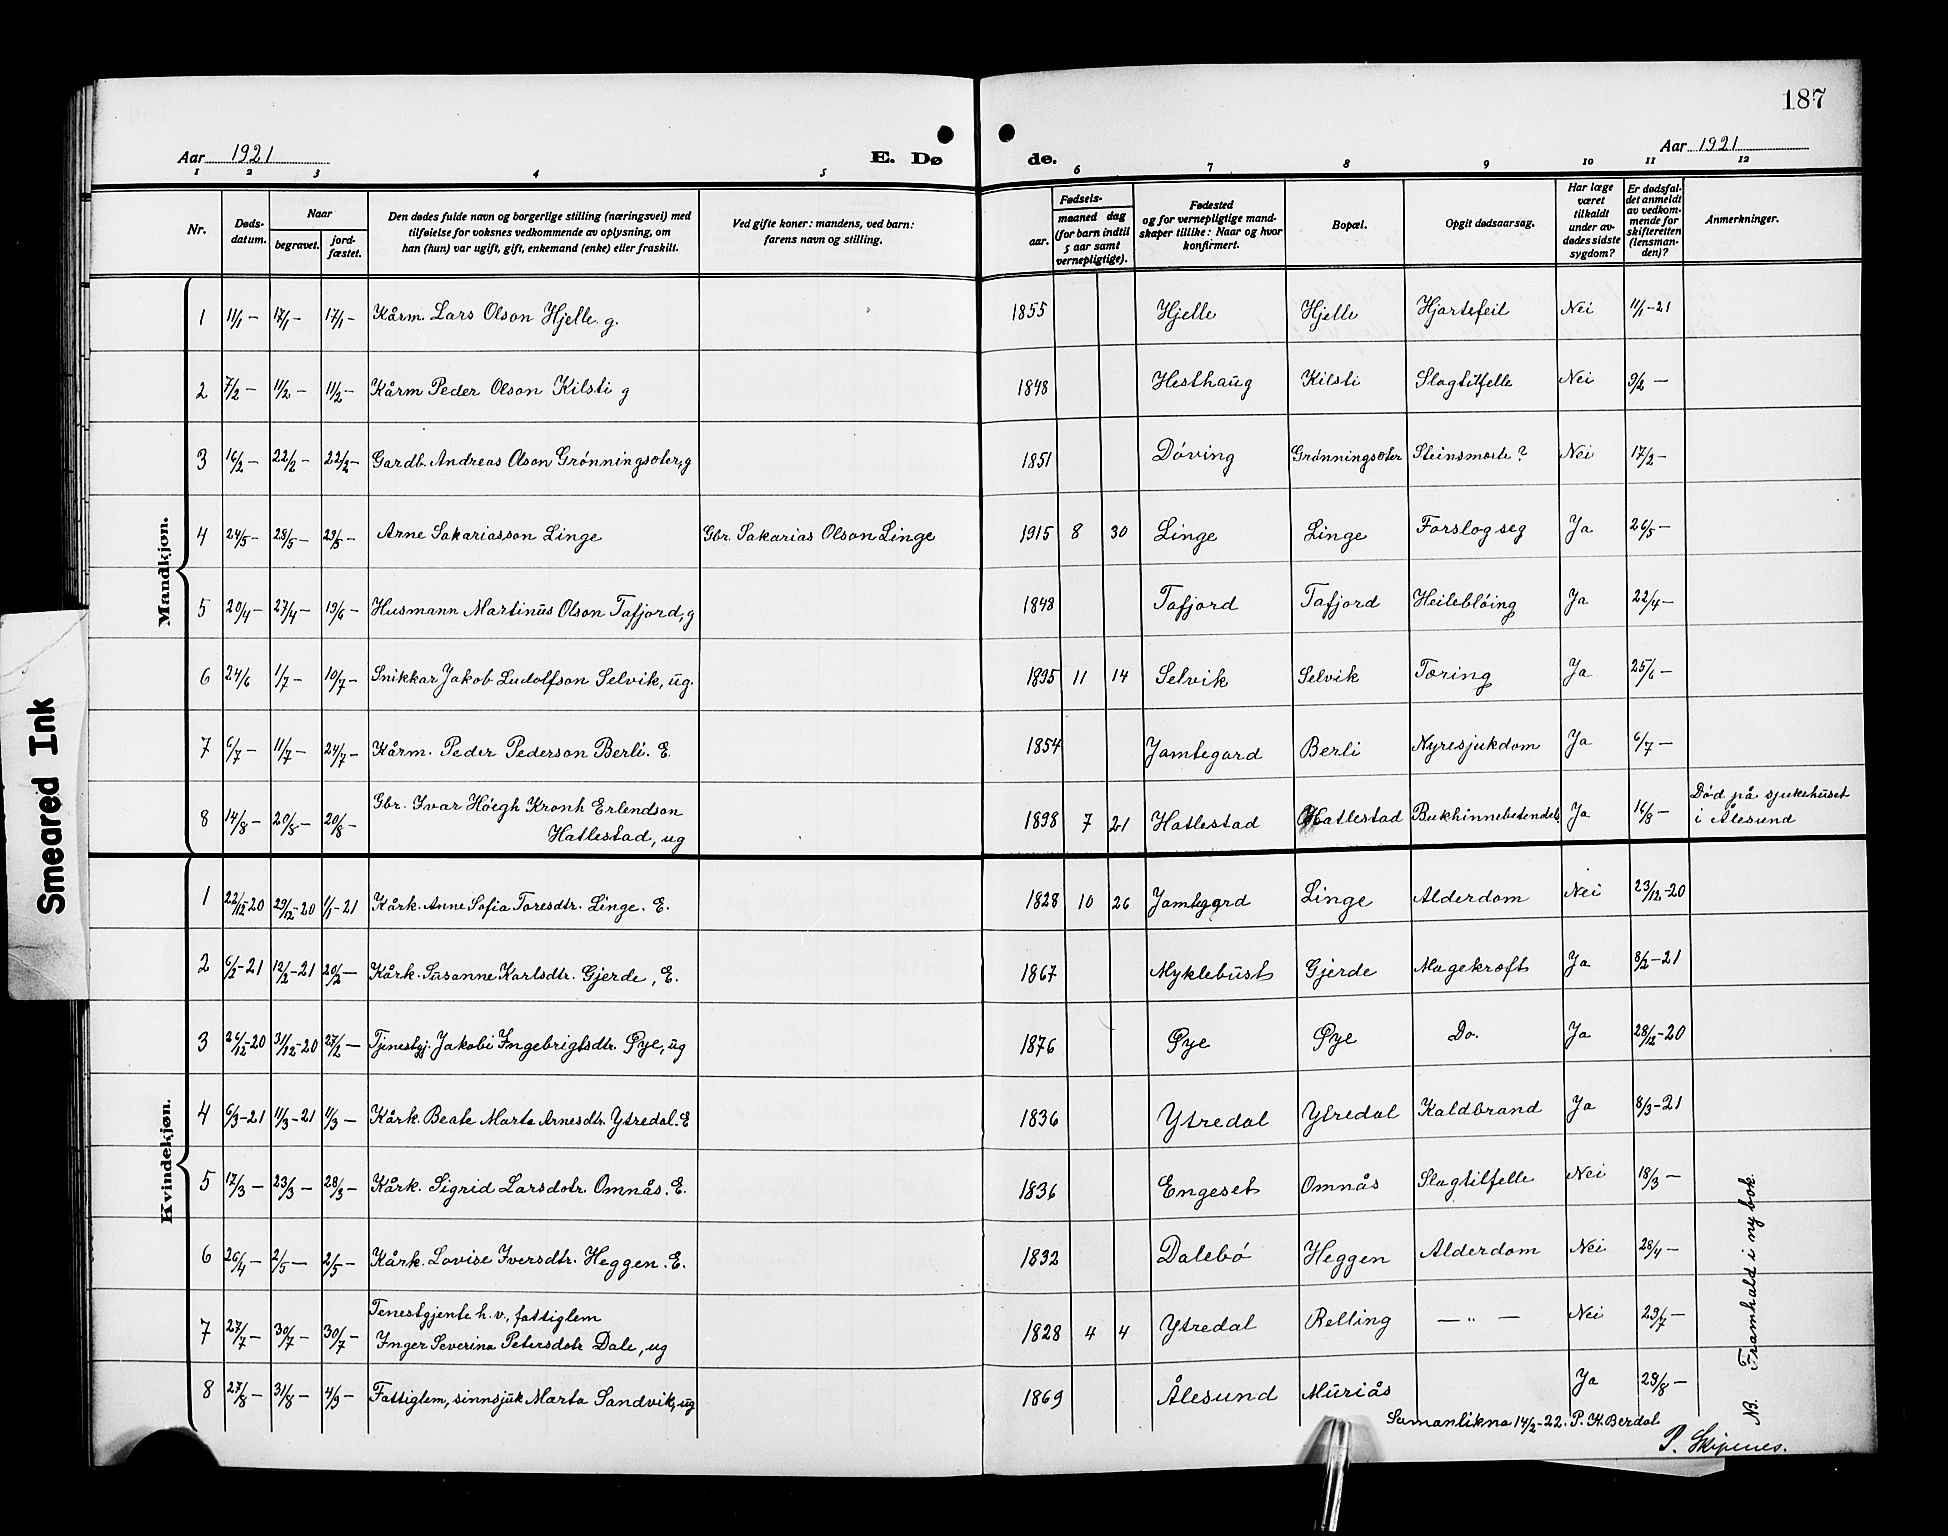 187
Aar 1921
E. Dø
de.
Aar 1921
1 2 3 4 5 6 7 8 9 10 11 12
Nr.
Døds-
datum.
Naar
begravet.
jord-
fæstet.
Den dødes fulde navn og borgerlige stilling (næringsvei) med
tilføielse for voksnes vedkommende av oplysning, om
han (hun) var ugift, gift, enkemand (enke) eller fraskilt.
Ved gifte koner: mandens, ved barn:
farens navn og stilling.
Fødsels-
aar.
maaned dag
(for barn indtil
5 aar samt
vernepligtige).
Fødested
og for vernepligtige mand-
skaper tillike: Naar og hvor
konfirmert.
Bopæl.
Opgit dødsaarsag.
Har læge
været
tilkaldt
under av-
dødes sidste
sygdom?
Er dødsfal-
det anmeldt
av vedkom-
mende for
skifteretten
(lensman-
den)?
Anmerkninger.
Mandkjøn.
1 11/1 — 17/1 — 17/1 — Kårm. Lars Olson Hjelle. g. 1855 Hjelle Hjelle Hjartefeil Nei 11/1-21
2 7/2 — 11/2 — 11/2 — Kårm Peder Olson Kilsti g 1848 Hesthaug Kilsti Slagtilfelle Nei 9/2 —
3 16/2 — 22/2 — 22/2 — Gardb. Andreas Olson Grønningsæter, g 1851 Døving Grønningsæter Steinsmerte? Nei 17/2 —
4 24/5 — 28/5 — 29/5 — Arne Sakariasson Linge Gbr. Sakarias Olson Linge 1915 8 30 Linge Linge Forslog seg Ja 26/5 —
5 20/4 — 27/4 — 19/6 — Husmann Martinus Olson Tafjord, g 1848 Tafjord Tafjord Heilebløing Ja 22/4 —
6 24/6 1/7 — 10/7 — Snikkar Jakob Ludolfson Selvik, ug. 1895 11 14 Selvik Selvik Tæring Ja 25/6 —
7 6/7 — 11/7 — 24/7 — Kårm. Peder Pederson Berli. E. 1854 Jamtegard Berli Nyresjukdom Ja 6/7 —
8 14/8 — 20/8 — 20/8 — Gbr. Ivar Høegh Kronh Erlendson
Hatlestad, ug 1898 7 21 Hatlestad Hatlestad Bukhinnebetendels. Ja 16/8 — Død på sjukehuset
i Ålesund
Kvindekjøn.
1 22/12-20 29/12-20 1/1-21 Kårk. Anne Sofia Toresdtr. Linge. E. 1828 10 26 Jamtegard Linge Alderdom Nei 23/12-20
2 6/2-21 12/2-21 20/2 — Kårk. Susanne Karlsdtr. Gjerde, E. 1867 Myklebust Gjerde Magekræft Ja 8/2-21
3 26/12-20 31/12-20 27/2 — Tjenestgj. Jakobi Ingebrigtsdtr. Øye, ug 1876 Øye Øye Do. Ja 28/12-20
4 6/3-21 11/3-21 11/3 — Kårk. Beate Marta Arnesdtr. Ytredal. E 1836 Ytredal Ytredal Kaldbrand Ja 8/3-21
5 17/3 — 23/3 — 28/3 — Kårk. Sigrid Larsdotr. Omnås. E. 1836 Engeset Omnås Slagtilfelle Nei 18/3 —
6 26/4 — 2/5 — 2/5 — Kårk. Lovise Iversdtr. Heggen. E. 1832 Dalebø Heggen Alderdom Nei 28/4 —
7 27/7 — 30/7 — 30/7 — Tenestgjente h.v., fattiglem
Inger Severina Petersdotr Dale, ug 1828 4 4 Ytredal Relling — " — Nei 29/7 —
8 27/8 — 31/8 — 4/9 — Fattiglem, sinnsjuk Marta Sandvik, ug 1869 Ålesund Muriås Ja 29/8 —
NB. Framhald i ny bok.
Samanlikna 14/2-22. P. K. Berdal
P. Skipenes.
Smeared Ink